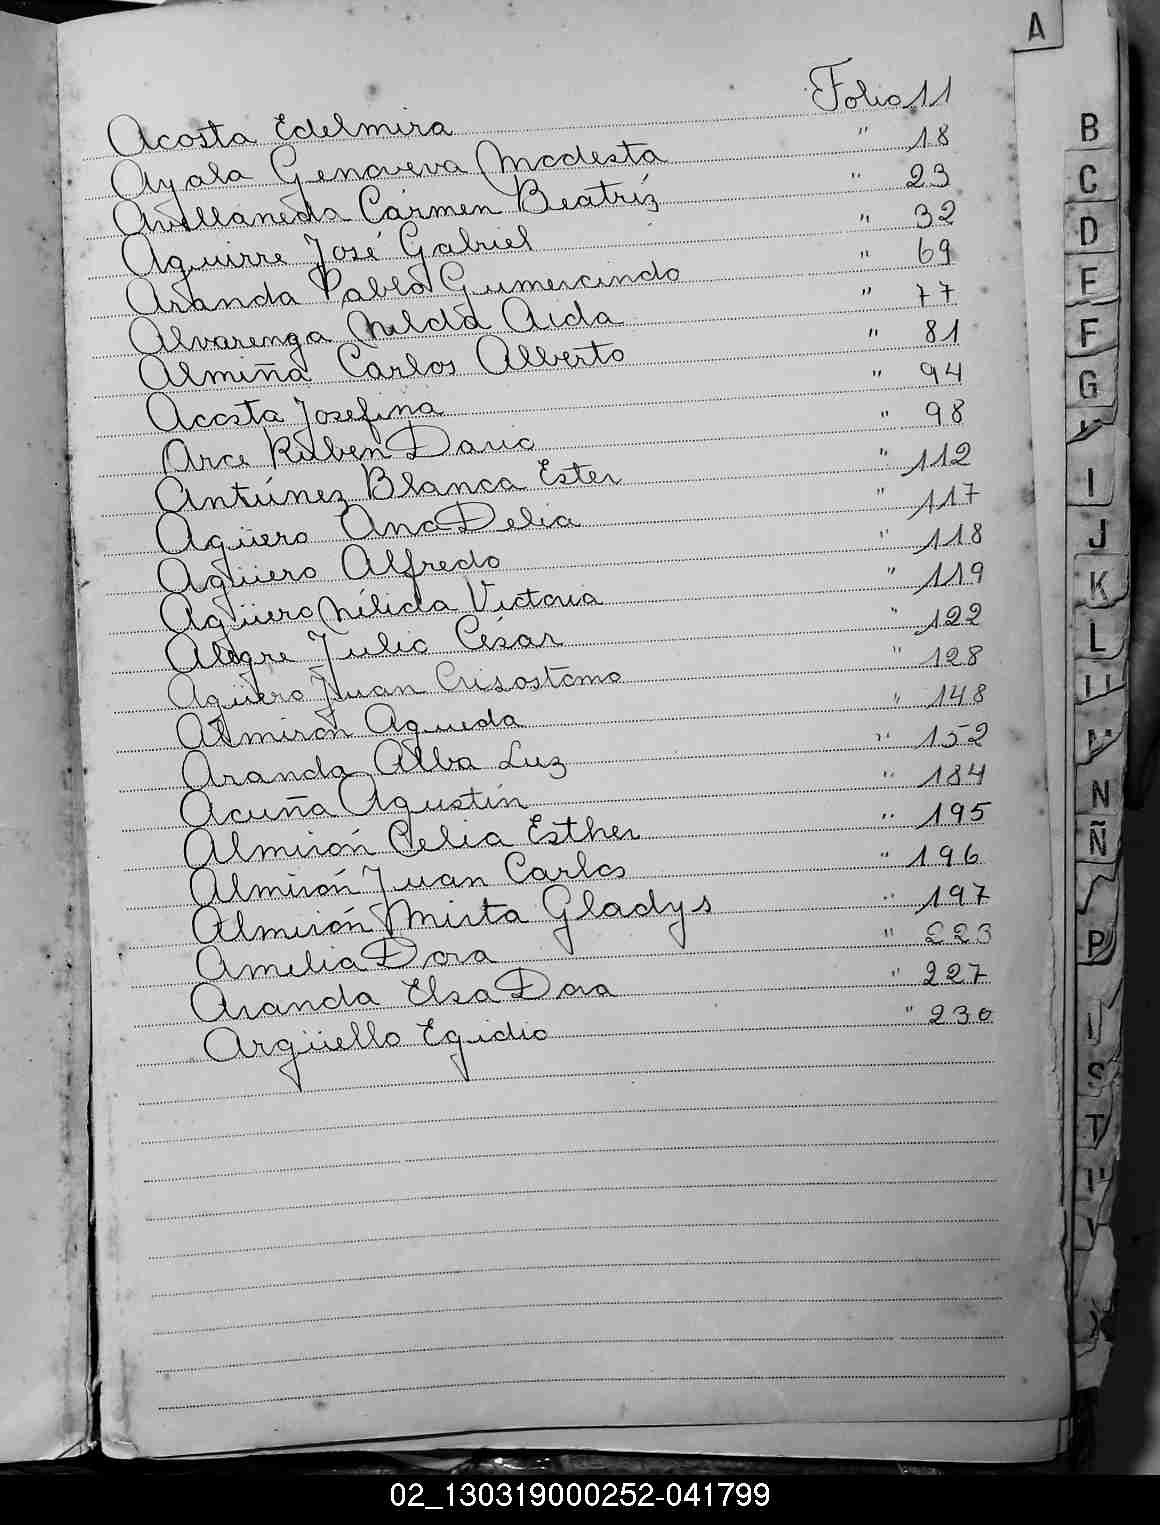 A
Acosta Edelmira Folio 11
Ayala Genoveva Modesta " 18
Avellaneda Cármen Beatríz " 23
Aguirre José Gabriel " 32
Aranda Pablo Gumercindo " 69
Alvarenga Nelda Aida " 77
Almiña Carlos Alberto " 81
Acosta Josefina " 94
Arce Ruben Dario " 98
Antúnez Blanca Ester " 112
Agüero Ana Delia " 117
Agüero Alfredo " 118
Agüero Nélida Victoria " 119
Alegre Julio César " 122
Agüero Juan Crisostomo " 128
Almirón Agueda " 148
Aranda Alba Luz " 152
Acuña Agustín " 184
Almirón Celia Esther " 195
Almirón Juan Carlos " 196
Almirón Mirta Gladys " 197
Amelia Dora " 223
Aranda Elsa Dora " 227
Argüello Egidio " 230
B
C
D
F
G
I
J
K
L
N
Ñ
P
S
T
02_130319000252-041799